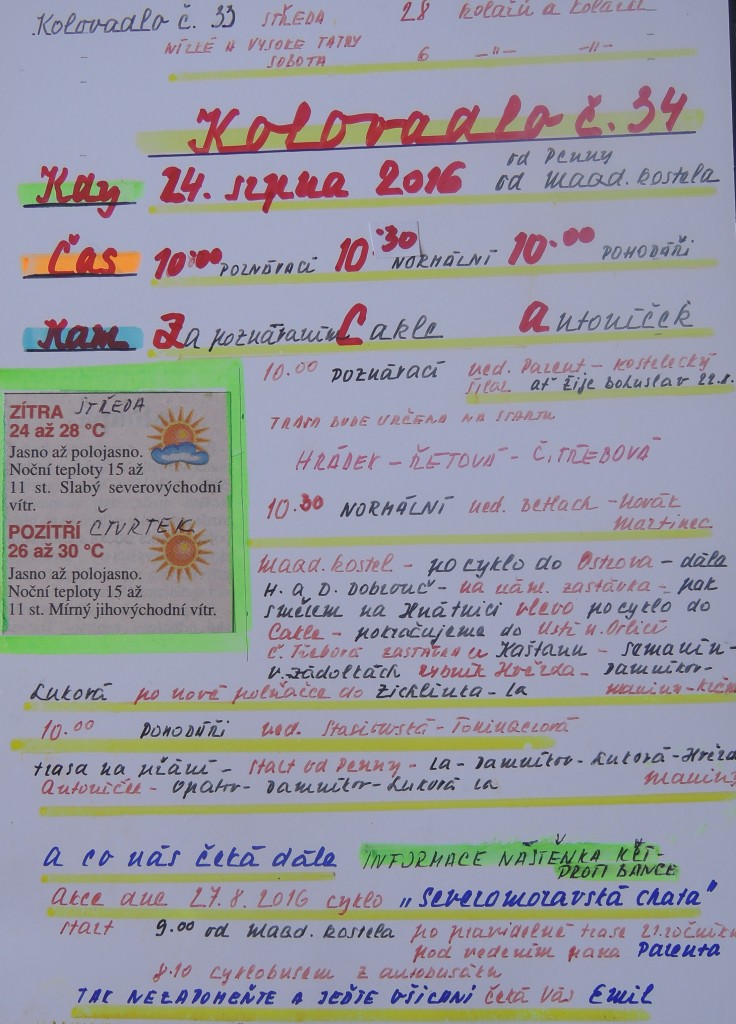 Kolovadlo č. 33 STŘEDA 28 kolářů a kolářek
NÍZKÉ A VYSOKÉ TATRY
SOBOTA 6 -"- -"-
Kolovadlo č. 34
Kdy 24. srpna 2016 od Penny
od Magd. kostela
Čas 10:00 POZNÁVACÍ 10:30 NORMÁLNÍ 10.00 POHODÁŘI
Kam Za poznáváním Cakle Antoníček
10.00 POZNÁVACÍ ved. Parent. - Kostelecký
ať žije Bohuslav 22.8.
TRASA BUDE URČENA NA STARTU
HRÁDEK - ŘETOVÁ - Č. TŘEBOVÁ
10.30 NORMÁLNÍ ved. Betlach - Novák
Martinec
ZÍTRA STŘEDA
24 až 28 °C
Jasno až polojasno.
Noční teploty 15 až
11 st. Slabý severovýchodní
vítr.
POZÍTŘÍ ČTVRTEK
26 až 30 °C
Jasno až polojasno.
Noční teploty 15 až
11 st. Mírný jihovýchodní vítr.
Magd. kostel - po cyklo do Ostrova - dále
H. a D. Dobrouč - na nám. zastávka - pak
směrem na Hnátnici vlevo po cyklo do
Cakle - pokračujeme do Ústí n. Orlicí
Č. Třebová zastávka u Kaštanu - Semanín -
v zádolkách rybník Hvězda - Damníkov -
Luková po nové polňačce do Žichlínka - La
10.00 POHODÁŘI ved.
trasa na přání - start od Penny - La - Damníkov - Luková - Hvězda
Antoníček - Opatov - Damníkov - Luková La
a co nás čeká dále INFORMACE NÁSTĚNKA KČT -
PROTI BANCE
Akce dne 27.8.2016 cyklo „Severomoravská chata"
start 9.00 od Magd. kostela po pravidelné trase 21. ročníku
pod vedením pana Parenta
8.10 cyklobusem z autobusáku
TAK NEZAPOMEŇTE A JEĎTE VŠICHNI čeká Vás Emil